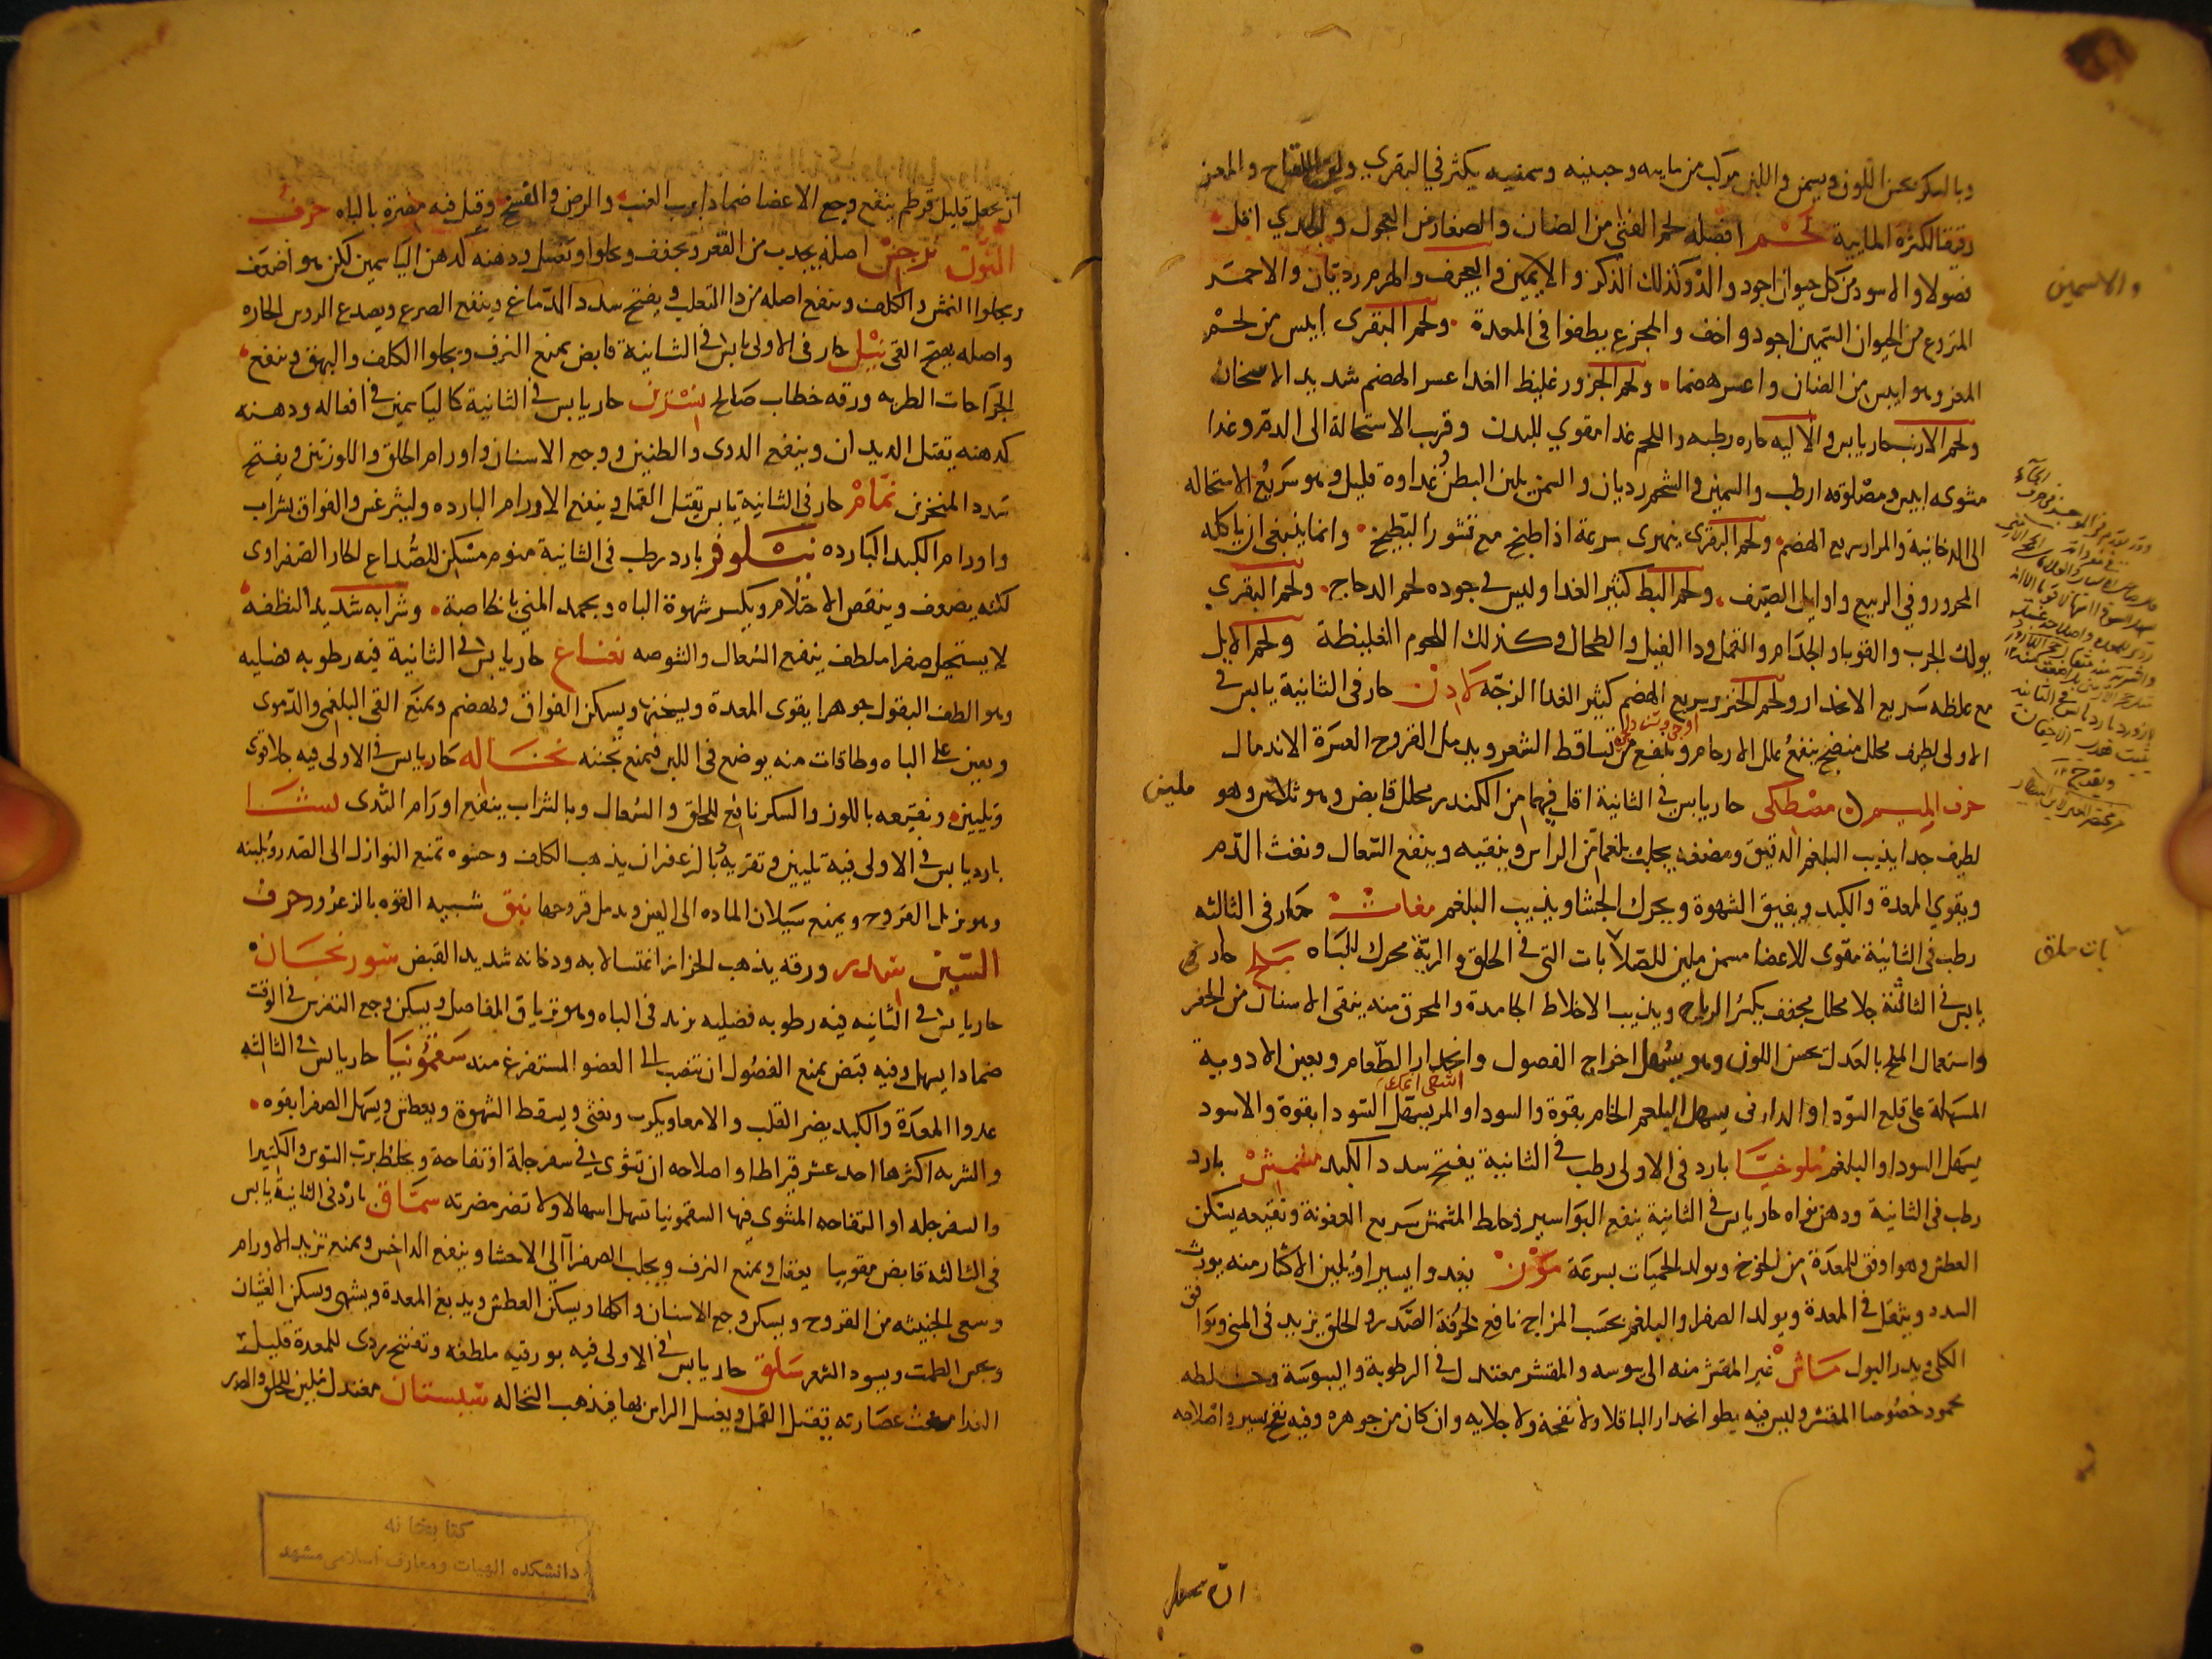 وبالسكر يحسن اللون ويسمن واللبن مركب من مايه وجبنيه وسمنيه يكثر في البقري ولبن اللقاح والمعز
رقيقا لكثرة المايية لحم افضله لحم الفتى من الضان والصغار من العجول والجدي اقل
فضولا والاسود من كل حيوان اجود والذ وكذلك الذكر والايمن والعجف والهرم رديان والاحمر
المنزوع من الحيوان السمين اجود واخف والمجزع يطفوا في المعدة ولحم البقرى ايبس من لحم
المعز وهو ايبس من الضان واعسر هضما ولحم الجزور غليظ الغدا عسر الهضم شديد الاسخان
ولحم الارنب حار يابس والاليه حاره رطبه واللحم غدا مقوي للبدن وقريب الاستحالة الى الدم وغدا
مشويه ايبس ومصلوقه ارطب والسمين والشحم رديان والسمن يلين البطن وغداوه قليل وهو سريع الاستحاله
الى الدخانية والمرار سريع الهضم ولحم البقرى يتهرى سرعة اذا طبخ مع قشور البطيخ وانما ينبغى ان ياكله
المحرور وفي الربيع واوايل الصيف ولحم البط كثير الغدا وليس في جوده لحم الدجاج ولحم البقري
يولد الجرب والقوبا والجذام والقمل ودا الفيل والطحال وكذلك اللحوم الغليظة ولحم الايل
مع غلظه سريع الانحدار ولحم الخنزير سريع الهضم كثير الغدا لزجه لادن حار في الثانية يابس في
الاولى لطيف محلل منضج ينفع علل الارحام وينفع من تساقط الشعر ويدمل القروح العسرة الاندمال
حرف الميم مصطكى حار يابس في الثانية اقل فيهما من الكندر محلل قابض وهو ملين وهو
لطيف جدا يذيب البلغم الدقيق ومضغه يجلب بلغما من الراس وينقيه وينفع السعال ونفث الدم
ويقوي المعدة والكبد ويفيق الشهوة ويحرك الجشا ويذيب البلغم مغاث حار في الثالثه
رطب في الثانية مقوى للاعضا مسمن ملين للصلابات التى في الحلق والرية محرك للباه ملح حار
يابس في الثالثة جلا محلل مجفف يكسر الرياح ويذيب الاخلاط الجامدة والمحرق منه ينقى الاسنان من الحفر
واستعمال الملح بالعدل يحسن اللون وهو يسهل اخراج الفصول وانحدار الطعام ويعين الادوية
المسهلة على قلع السودا والدارانى يسهل البلغم الخام بقوة والسودا والمر يسهل السودا بقوة والاسود
يسهل السودا والبلغم ملوخيا بارد في الاولى رطب في الثانية يفتح سدد الكبد مشمش بارد
رطب في الثانية ودهن نواه حار يابس في الثانية ينفع البواسير وخلط المشمش سريع العفونة ونقيعه يسكن
العطش وهو اوفق للمعدة من الخوخ ويولد الحميات بسرعة موز يغدوا يسيرا ويلين الاكثار منه يورث
السدد ويثقل في المعدة ويولد الصفرا والبلغم بحسب المزاج نافع لحرقة الصدر والحلق يزيد في المني ويوافق
الكلى ويدر البول ماش غير المقشر منه الى يبوسه والمقشر معتدل في الرطوبة واليبوسة وخلطه
محمود خصوصا المقشر وليس فيه بطو انحدار الباقلا ولا نفخه ولا جلايه وان كان من جوهره وفيه نفخ يسير واصلاحه
والايمن
ان يجعل
ان يجعل قليل قرطم ينفع وجع الاعضا ضمادا برب العنب والرض والفسخ وقيل فيه مضرة بالباه حرف
النون نرجس اصله يجدب من القعر ويجفف ويجلوا ويغسل ودهنه كدهن الياسمين لكن هو اضعف
ويجلوا النمش والكلف وينفع اصله من دا الثعلب ويفتح سدد الدماغ وينفع الصرع ويصدع الروس الحاره
واصله يهيج القى نيل حار في الاولى يابس في الثانية قابض يمنع النزف ويجلوا الكلف والبهق وينفع
الجراحات الطريه ورقه خطاب صالح نسرين حار يابس في الثانية كالياسمين في افعاله ودهنه
كدهنه يقتل الديدان وينفع الدوى والطنين ووجع الاسنان واورام الحلق واللوزتين ويفتح
سدد المنخرين نمام حار في الثانية يابس يقتل القمل وينفع الاورام البارده وليثرغس والفواق بشراب
واورام الكبد البارده نيلوفر بارد رطب في الثانية منوم مسكن للصداع الحار الصفراوى
لكنه يضعف وينقص الاحتلام ويكسر شهوة الباه ويجمد المني بخاصية وشرابه شديد التطفيه
لا يستحيل صفرا ملطف ينفع السعال والشوصه نعناع حار يابس في الثانية فيه رطوبه فضليه
وهو الطف البقول جوهرا يقوى المعدة ويسخنها ويسكن الفواق ويهضم ويمنع القى البلغمي والدموى
ويعين على الباه وطاقات منه يوضع في اللبن فيمنع تجبنه نخاله حار يابس في الاولى فيه جلا قوى
وتليين ونقيعه باللوز والسكر نافع للحلق والسعال وبالشراب ينفع اورام الثدى نشا
بارد يابس في الاولى فيه تليين وتغريه وبالزعفران يذهب الكلف وحسوه تمنع النوازل الى الصدر ويلينه
وهو يزيل القروح ويمنع سيلان الماده الى العين ويدمل قروحها نبق شبيه القوه بالزعرور حرف
السين سدر ورقه يذهب الحزاز اغتسالا به ودخانه شديد القبض سورنجان
حار يابس في الثانيه فيه رطوبه فضليه يزيد في الباه وهو ترياق المفاصل ويسكن وجع النقرس في الوقت
ضمادا يسهل وفيه قبض يمنع الفضول ان تنصب الى العضو المستفرغ منه سقمونيا حار يابس في الثالثه
عدوا المعدة والكبد يضر القلب والامعا ويكرب ويغثى ويسقط الشهوة ويعطش ويسهل الصفرا بقوه
والشربه اكثرها احد عشر قيراطا واصلاحه ان تشوى في سفرجلة او تفاحة ويخلط برب السوس والكثيرا
والسفرجله او التفاحه المشوى فيها السقمونيا تسهل اسهالا ولا تضر مضرته سماق بارد في الثانية يابس
في الثالثه قابض مقوى يعقل ويمنع النزف ويجلب الصفرا الى الاحشا وينفع الداخس ويمنع تزيد الاورام
وسعى الخبيثه من القروح ويسكن وجع الاسنان واكلها ويسكن العطش ويدبغ المعدة ويشهى ويسكن الغثيان
ويحبس الطمث ويسود الشعر سلق حار يابس في الاولى فيه بورقيه ملطفه وتفتيح ردى للمعدة قليل
الغدا مغث عصارته تقتل القمل ويغسل الراس بها فيذهب النخاله سبستان معتدل ملين للحلق والصدر
كتابخانه
دانشكده الهيات ومعارف اسلامى مشهد